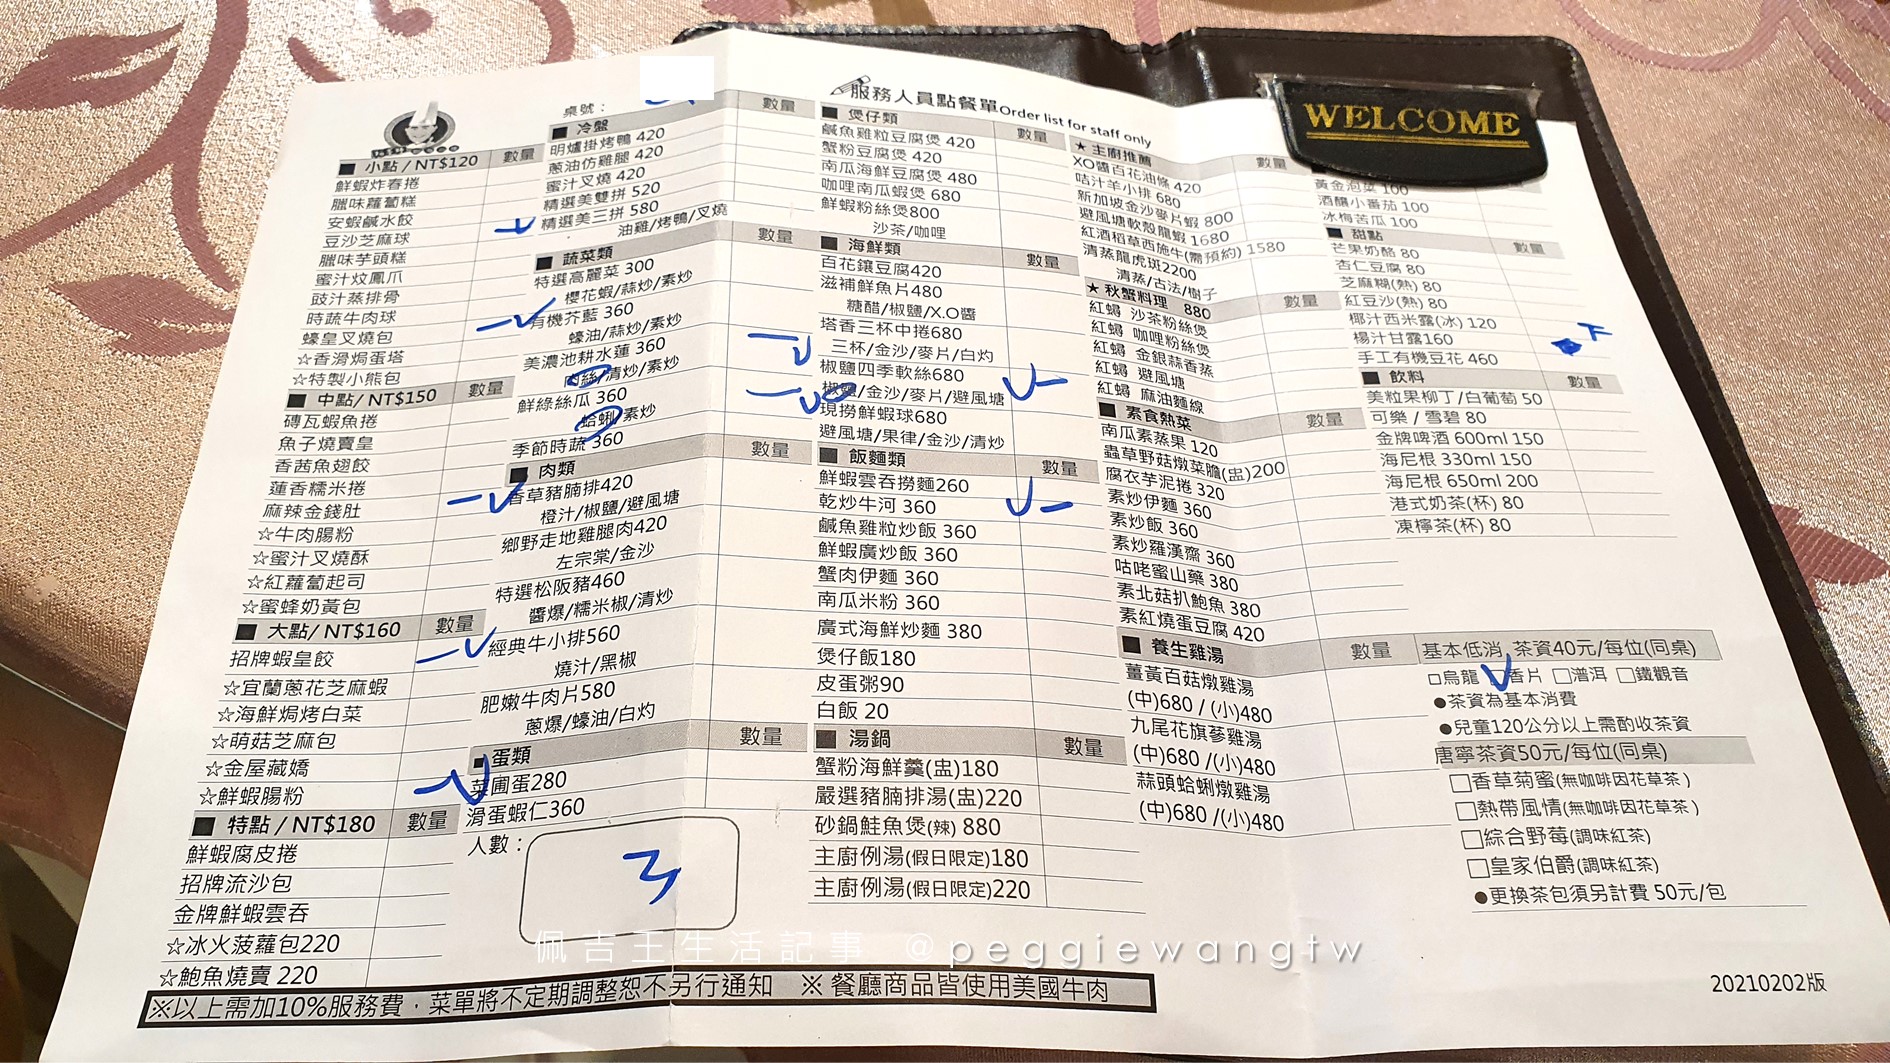 服務人員點餐單Order list for staff only
WELCOME
桌號：
■ 小點 / NT$120 數量
鮮蝦炸春捲
臘味蘿蔔糕
安蝦鹹水餃
豆沙芝麻球
臘味芋頭糕
蜜汁炆鳳爪
豉汁蒸排骨
時蔬牛肉球
蠔皇叉燒包
☆香滑焗蛋塔
☆特製小熊包
■ 中點/ NT$150 數量
磚瓦蝦魚捲
魚子燒賣皇
香茜魚翅餃
蓮香糯米捲
麻辣金錢肚
☆牛肉腸粉
☆蜜汁叉燒酥
☆紅蘿蔔起司
☆蜜蜂奶黃包
■ 大點/ NT$160 數量
招牌蝦皇餃
☆宜蘭蔥花芝麻蝦
☆海鮮焗烤白菜
☆萌菇芝麻包
☆金屋藏嬌
☆鮮蝦腸粉
■ 特點 / NT$180 數量
鮮蝦腐皮捲
招牌流沙包
金牌鮮蝦雲吞
☆冰火菠蘿包220
☆鮑魚燒賣 220
■ 冷盤 數量
明爐掛烤鴨 420
蔥油仿雞腿 420
蜜汁叉燒 420
精選美雙拼 520
精選美三拼 580
油雞/烤鴨/叉燒
■ 蔬菜類 數量
特選高麗菜 300
櫻花蝦/蒜炒/素炒
有機芥藍 360
蠔油/蒜炒/素炒
美濃池耕水蓮 360
肉絲/清炒/素炒
鮮綠絲瓜 360
蛤蜊/素炒
季節時蔬 360
■ 肉類 數量
香草豬腩排420
橙汁/椒鹽/避風塘
鄉野走地雞腿肉420
左宗棠/金沙
特選松阪豬460
醬爆/糯米椒/清炒
經典牛小排560
燒汁/黑椒
肥嫩牛肉片580
蔥爆/蠔油/白灼
■ 蛋類 數量
菜圃蛋280
滑蛋蝦仁360
人數：
3
■ 煲仔類 數量
鹹魚雞粒豆腐煲 420
蟹粉豆腐煲 420
南瓜海鮮豆腐煲 480
咖哩南瓜蝦煲 680
鮮蝦粉絲煲800
沙茶/咖哩
■ 海鮮類 數量
百花鑲豆腐420
滋補鮮魚片480
糖醋/椒鹽/X.O醬
塔香三杯中捲680
三杯/金沙/麥片/白灼
椒鹽四季軟絲680
椒鹽/金沙/麥片/避風塘
現撈鮮蝦球680
避風塘/果律/金沙/清炒
■ 飯麵類 數量
鮮蝦雲吞撈麵260
乾炒牛河 360
鹹魚雞粒炒飯 360
鮮蝦廣炒飯 360
蟹肉伊麵 360
南瓜米粉 360
廣式海鮮炒麵 380
煲仔飯180
皮蛋粥90
白飯 20
■ 湯鍋 數量
蟹粉海鮮羹(盅)180
嚴選豬腩排湯(盅)220
砂鍋鮭魚煲(辣) 880
主廚例湯(假日限定)180
主廚例湯(假日限定)220
★ 主廚推薦 數量
XO醬百花油條 420
咕汁羊小排 680
新加坡金沙麥片蝦 800
避風塘軟殼龍蝦 1680
紅酒稻草西施牛(需預約) 1580
清蒸龍虎斑2200
清蒸/古法/樹子
★ 秋蟹料理 880 數量
紅蟳 沙茶粉絲煲
紅蟳 咖哩粉絲煲
紅蟳 金銀蒜香蒸
紅蟳 避風塘
紅蟳 麻油麵線
■ 素食熱菜 數量
南瓜素蒸果 120
蟲草野菇燉菜膽(盅)200
腐衣芋泥捲 320
素炒伊麵 360
素炒飯 360
素炒羅漢齋 360
咕咾蜜山藥 380
素北菇扒鮑魚 380
素紅燒蛋豆腐 420
■ 養生雞湯 數量
薑黃百菇燉雞湯
(中)680 / (小)480
九尾花旗蔘雞湯
(中)680 /(小)480
蒜頭蛤蜊燉雞湯
(中)680 /(小)480
黃金泡菜 100
酒釀小番茄 100
冰梅苦瓜 100
■ 甜點 數量
芒果奶酪 80
杏仁豆腐 80
芝麻糊(熱) 80
紅豆沙(熱) 80
椰汁西米露(冰) 120
楊汁甘露160
手工有機豆花 460
下
■ 飲料 數量
美粒果柳丁/白葡萄 50
可樂 / 雪碧 80
金牌啤酒 600ml 150
海尼根 330ml 150
海尼根 650ml 200
港式奶茶(杯) 80
凍檸茶(杯) 80
基本低消 茶資40元/每位(同桌)
□烏龍 □香片 □普洱 □鐵觀音
●茶資為基本消費
●兒童120公分以上需酌收茶資
唐寧茶資50元/每位(同桌)
□香草菊蜜(無咖啡因花草茶)
□熱帶風情(無咖啡因花草茶)
□綜合野莓(調味紅茶)
□皇家伯爵(調味紅茶)
●更換茶包須另計費 50元/包
※以上需加10%服務費，菜單將不定期調整恕不另行通知 ※ 餐廳商品皆使用美國牛肉
20210202版
佩吉王生活記事 @peggiewangtw